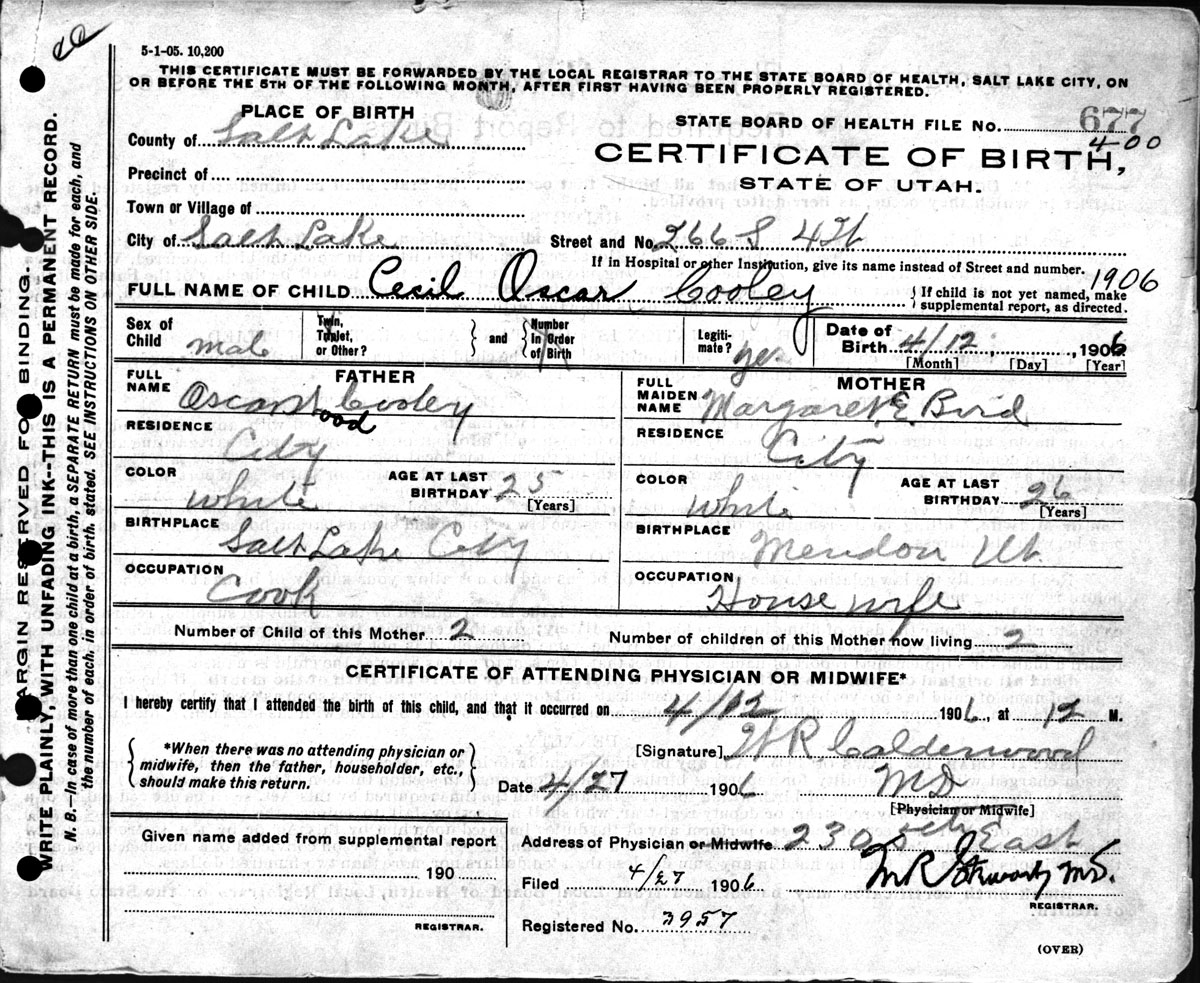 5-1-05. 10,200
THIS CERTIFICATE MUST BE FORWARDED BY THE LOCAL REGISTRAR TO THE STATE BOARD OF HEALTH, SALT LAKE CITY, ON
OR BEFORE THE 5TH OF THE FOLLOWING MONTH, AFTER FIRST HAVING BEEN PROPERLY REGISTERED.
MARGIN RESERVED FOR BINDING.
WRITE PLAINLY, WITH UNFADING INK--THIS IS A PERMANENT RECORD.
N. B.—In case of more than one child at a birth, a SEPARATE RETURN must be made for each, and
the number of each, in order of birth, stated. SEE INSTRUCTIONS ON OTHER SIDE.
PLACE OF BIRTH
STATE BOARD OF HEALTH FILE No. 677
400
County of Salt Lake
CERTIFICATE OF BIRTH,
STATE OF UTAH.
Precinct of
Town or Village of
City of Salt Lake Street and No. 266 S 4th
If in Hospital or other Institution, give its name instead of Street and number.
1906
FULL NAME OF CHILD Cecil Oscar Cooley
{ If child is not yet named, make
supplemental report, as directed.
Sex of Child male
Twin, Triplet, or Other?
and
Number in Order of Birth
Legitimate? yes
Date of Birth 4/12, 1906
[Month] [Day] [Year]
FATHER
FULL NAME Oscar Cooley
ood
RESIDENCE City
COLOR White
AGE AT LAST BIRTHDAY 25
[Years]
BIRTHPLACE Salt Lake City
OCCUPATION Cook
MOTHER
FULL MAIDEN NAME Margaret E. Bird
RESIDENCE City
COLOR White
AGE AT LAST BIRTHDAY 26
[Years]
BIRTHPLACE Mendon Ut.
OCCUPATION House wife
Number of Child of this Mother 2 Number of children of this Mother now living 2
CERTIFICATE OF ATTENDING PHYSICIAN OR MIDWIFE*
I hereby certify that I attended the birth of this child, and that it occurred on 4/12 1906, at 12 M.
{ *When there was no attending physician or
midwife, then the father, householder, etc.,
should make this return. }
[Signature] W R Calderwood
Date 4/27 1906 MD
[Physician or Midwife]
Given name added from supplemental report
190
REGISTRAR.
Address of Physician or Midwife 230 So East
Filed 4/27 1906
M.D.
REGISTRAR.
Registered No. 3957
(OVER)